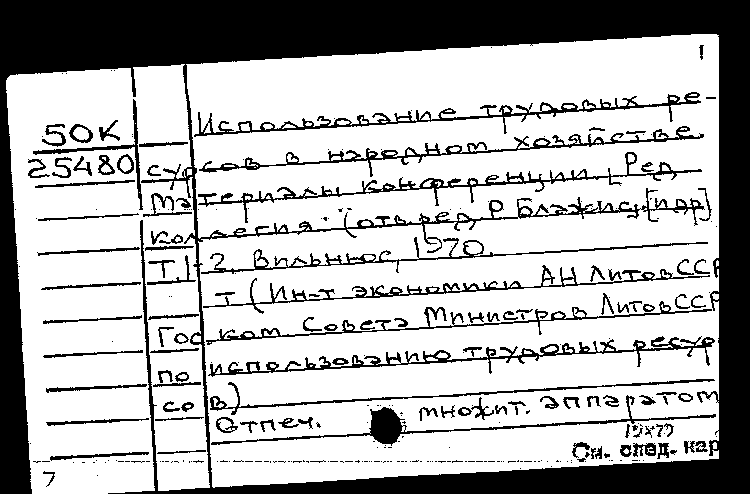 1
50К
25480
Использование трудовых ре-
сурсов в народном хозяйстве.
Материалы конференции. [Ред.
коллегия: (отв. ред. Р. Блажис) [и др.]
Т.1-2. Вильнюс, 1970.
т (Ин-т экономики АН ЛитовССР
Гос. ком. Совета Министров ЛитовССР
по использованию трудовых ресур
сов)
Отпеч. множит. аппаратом
См. след. кар
7